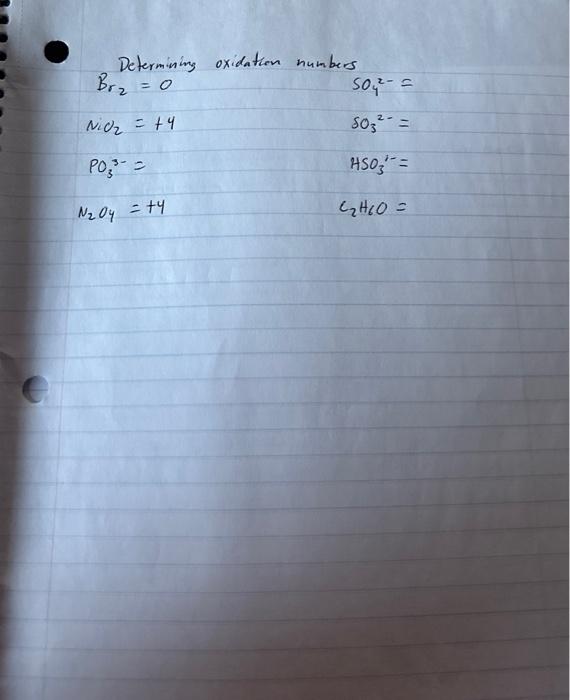 Determining oxidation numbers
Br₂ = 0
SO₄²⁻ =
NiO₂ = +4
SO₃²⁻ =
PO₃³⁻ =
HSO₃¹⁻ =
N₂O₄ = +4
C₂H₆O =